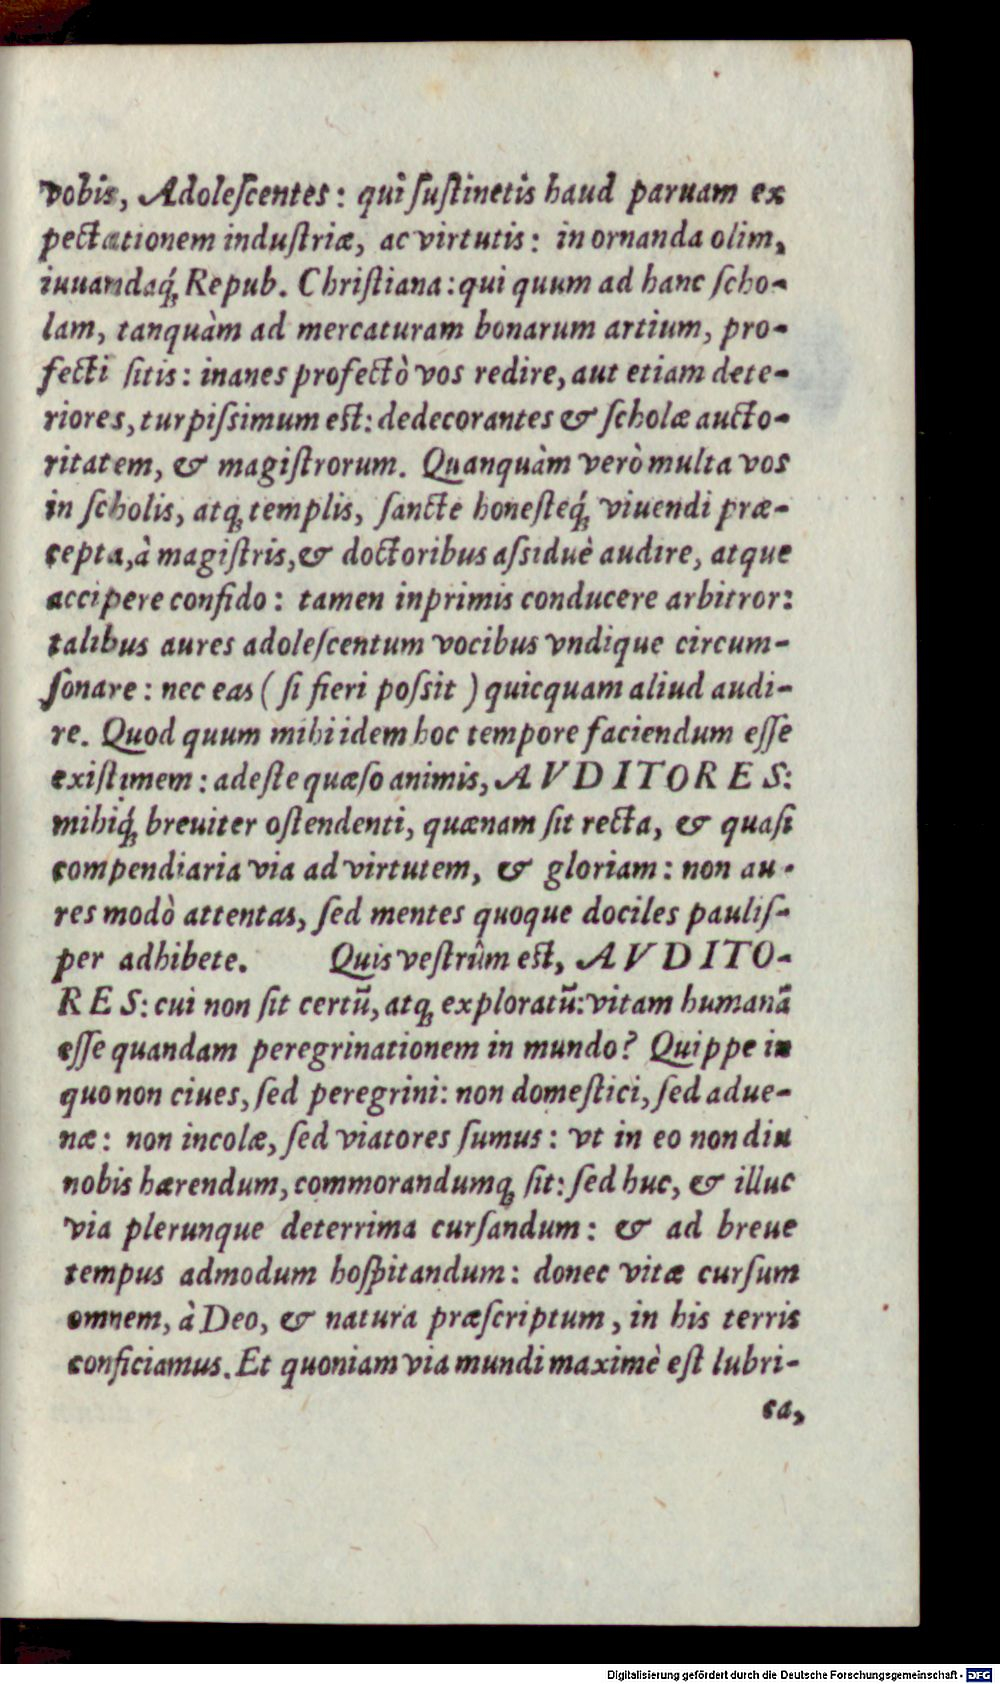 vobis, Adoleſcentes: qui ſuſtinetis haud paruam ex
pectationem induſtriæ, ac virtutis: in ornanda olim,
iuuandaq́; Repub. Chriſtiana: qui quum ad hanc ſcho-
lam, tanquàm ad mercaturam bonarum artium, pro-
fecti ſitis: inanes profectò vos redire, aut etiam dete-
riores, turpiſsimum est: dedecorantes & ſcholæ aucto-
ritatem, & magiſtrorum. Quanquàm verò multa vos
in ſcholis, atq; templis, ſancte honeſteq́; viuendi præ-
cepta, à magiſtris, & doctoribus aſsiduè audire, atque
accipere confido: tamen inprimis conducere arbitror:
talibus aures adoleſcentum vocibus vndique circum-
ſonare: nec eas ( ſi fieri poſsit ) quicquam aliud audi-
re. Quod quum mihi idem hoc tempore faciendum eſſe
exiſtimem: adeſte quæſo animis, AVDITORES:
mihiq́; breuiter oſtendenti, quænam ſit recta, & quaſi
compendiaria via ad virtutem, & gloriam: non au-
res modò attentas, ſed mentes quoque dociles pauliſ-
per adhibete. Quis veſtrûm est, AVDITO-
RES: cui non ſit certũ, atq; exploratũ: vitam humanã
eſſe quandam peregrinationem in mundo? Quippe in
quo non ciues, ſed peregrini: non domeſtici, ſed adue-
næ: non incolæ, ſed viatores ſumus: vt in eo non diu
nobis hærendum, commorandumq; ſit: ſed huc, & illuc
via plerunque deterrima curſandum: & ad breue
tempus admodum hoſpitandum: donec vitæ curſum
omnem, à Deo, & natura præſcriptum, in his terris
conficiamus. Et quoniam via mundi maximè eſt lubri-
ca,
Digitalisierung gefördert durch die Deutsche Forschungsgemeinschaft - DFG